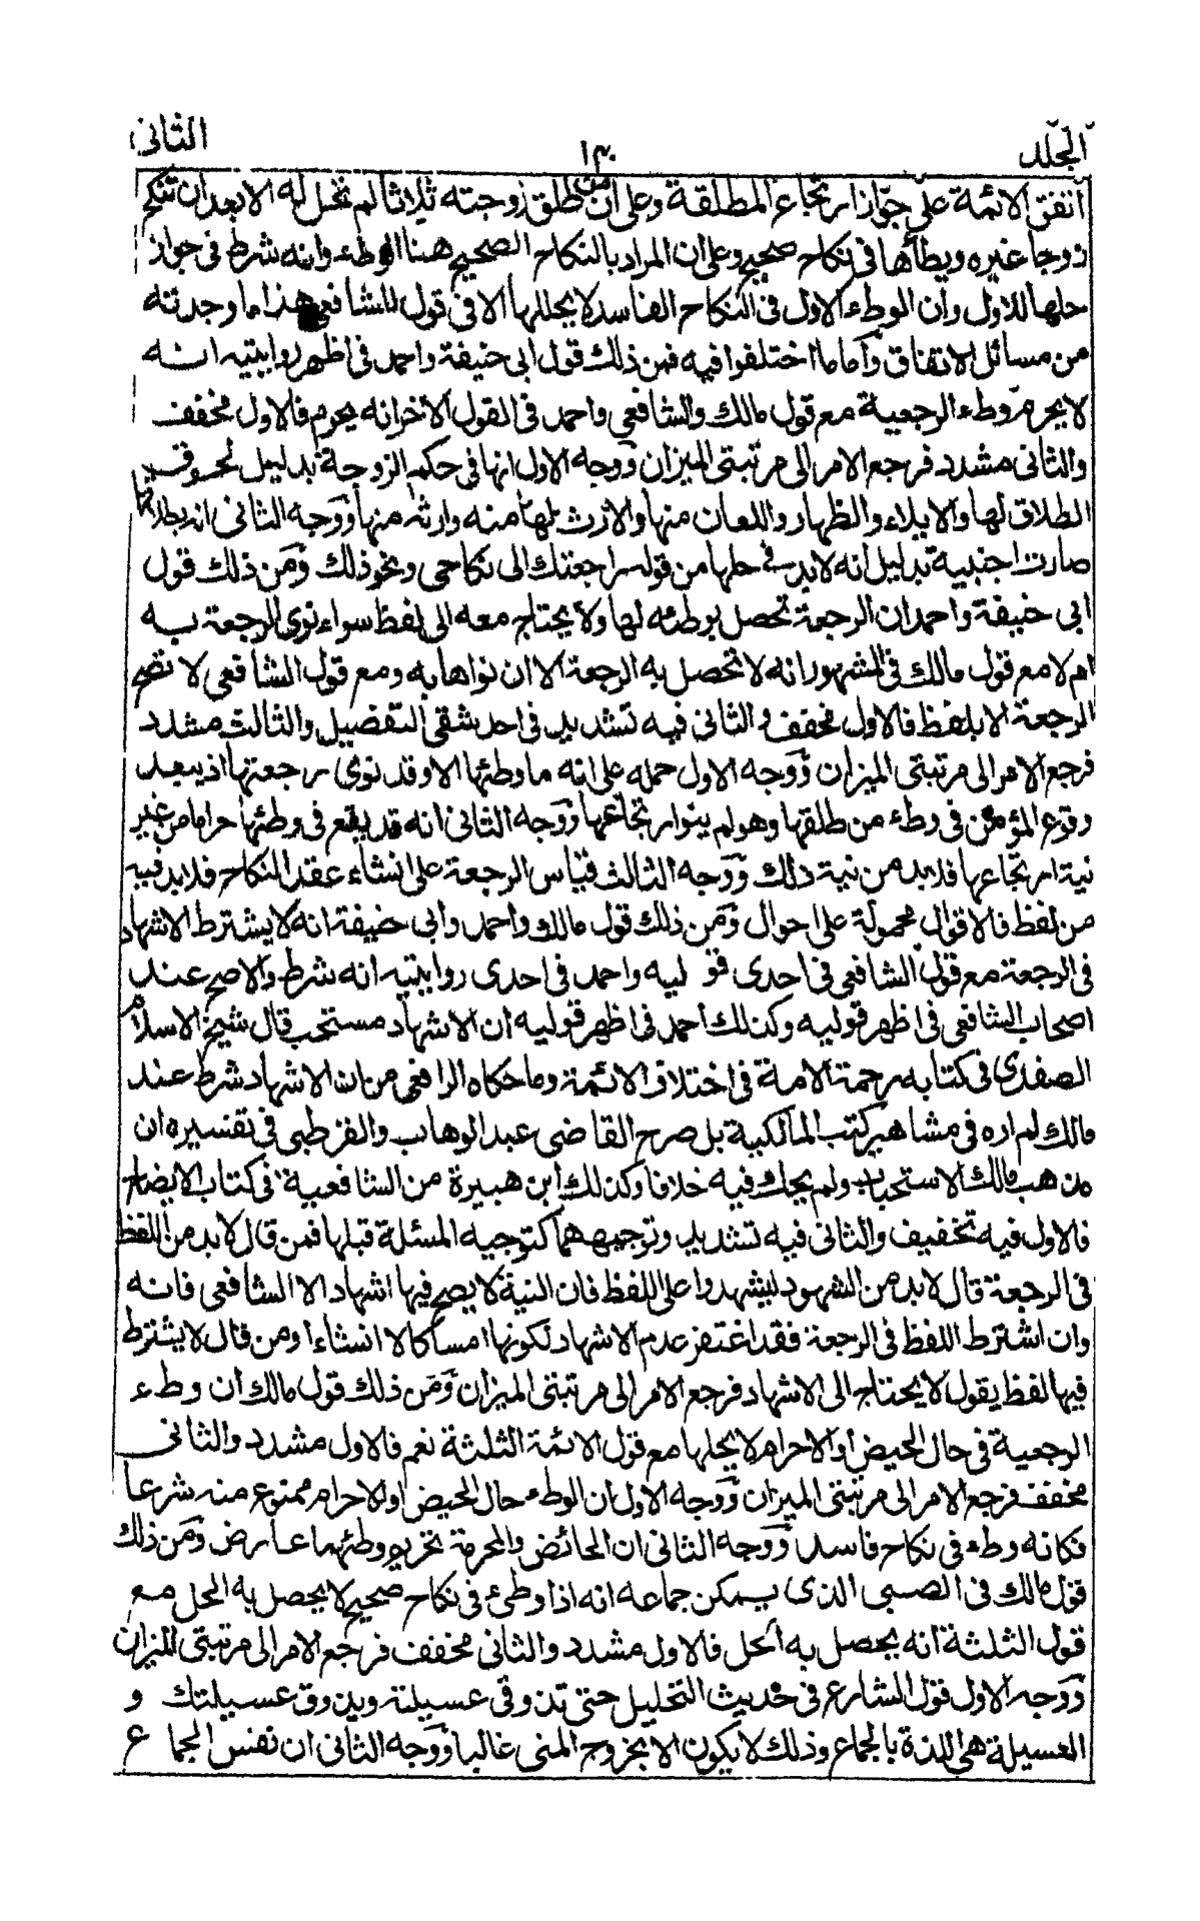 المجلد ١٣٠ الثاني
اتفق الائمة على جواز ارتجاع المطلقة وعلى ان من طلق زوجته ثلاثا لم تحل له الا بعد ان تنكح
زوجا غيره ويطأها في نكاح صحيح وعلى ان المراد بالنكاح الصحيح هنا الوطء وانه شرط في جواز
حلها للاول وان الوطء الاول في النكاح الفاسد لا يحللها الا في قول للشافعي هذا ما وجدته
من مسائل الاتفاق وأما ما اختلفوا فيه فمن ذلك قول ابي حنيفة واحمد في اظهر روايتيه انه
لا يحرم وطء الرجعية مع قول مالك والشافعي واحمد في القول الآخر انه يحرم فالاول مخفف
والثاني مشدد فرجع الامر الى مرتبتى الميزان ووجه الاول انها في حكم الزوجة بدليل لحوق
الطلاق لها والايلاء والظهار واللعان منها والارث لها منه وارثه منها ووجه الثاني انه بطلاقها
صارت اجنبية بدليل أنه لا بد في حلها من قوله راجعتك الى نكاحي ونحو ذلك ومن ذلك قول
ابي حنيفة واحمد ان الرجعة تحصل بوطئه لها ولا يحتاج معه الى لفظ سواء نوى الرجعة به
ام لا مع قول مالك في المشهور انه لا تحصل به الرجعة الا ان نواها به ومع قول الشافعي لا تصح
الرجعة الا بلفظ فالاول مخفف والثاني فيه تشديد في احد شقى التفصيل والثالث مشدد
فرجع الامر الى مرتبتى الميزان ووجه الاول حمله على انه ما وطئها الا وقد نوى رجعتها اذ يبعد
وقوع المؤمن في وطء من طلقها وهو لم ينو ارتجاعها ووجه الثاني انه قد يقع في وطئها حراما من غير
نية ارتجاعها فلا بد من نية ذلك ووجه الثالث قياس الرجعة على انشاء عقد النكاح فلا بد فيه
من لفظ فالاقوال محمولة على احوال ومن ذلك قول مالك واحمد وأبي حنيفة انه لا يشترط الاشهاد
في الرجعة مع قول الشافعي في احدى قوليه واحمد في احدى روايتيه انه شرط والاصح عند
اصحاب الشافعي في اظهر قوليه وكذلك أحمد في اظهر قوليه ان الاشهاد مستحب قال شيخ الاسلام
الصفدي في كتابه رحمة الامة في اختلاف الائمة وما حكاه الرافعي من ان الاشهاد شرط عند
مالك لم اره في مشاهير كتب المالكية بل صرح القاضي عبد الوهاب والقرطبي في تفسيره ان
مذهب مالك الاستحباب ولم يحك فيه خلافا وكذلك ابن هبيرة من الشافعية في كتاب الايضاح
فالاول فيه تخفيف والثاني فيه تشديد وتوجيههما كتوجيه المسئلة قبلها فمن قال لا بد من اللفظ
في الرجعة قال لا بد من الشهود ليشهدوا على اللفظ فان النية لا يصح فيها اشهاد الا الشافعي فانه
وان اشترط اللفظ في الرجعة فقد اغتفر عدم الاشهاد لكونها امساكا لا انشاءا ومن قال لا يشترط
فيها لفظ يقول لا يحتاج الى الاشهاد فرجع الامر الى مرتبتى الميزان ومن ذلك قول مالك ان وطء
الرجعية في حال الحيض أو الاحرام لا يحلها مع قول الائمة الثلثة نعم فالاول مشدد والثاني
مخفف فرجع الامر الى مرتبتى الميزان ووجه الاول ان الوطء حال الحيض او الاحرام ممنوع منه شرعا
فكانه وطء في نكاح فاسد ووجه الثاني ان الحائض والمحرمة تحريم وطئهما عارض ومن ذلك
قول مالك في الصبي الذي يمكن جماعه انه اذا وطئ في نكاح صحيح لا يحصل به الحل مع
قول الثلثة انه يحصل به الحل فالاول مشدد والثاني مخفف فرجع الامر الى مرتبتى الميزان
ووجه الاول قول الشارع في حديث التحليل حتى تذوقي عسيلته ويذوق عسيلتك و
العسيلة هي اللذة بالجماع وذلك لا يكون الا بخروج المنى غالبا ووجه الثاني ان نفس الجماع